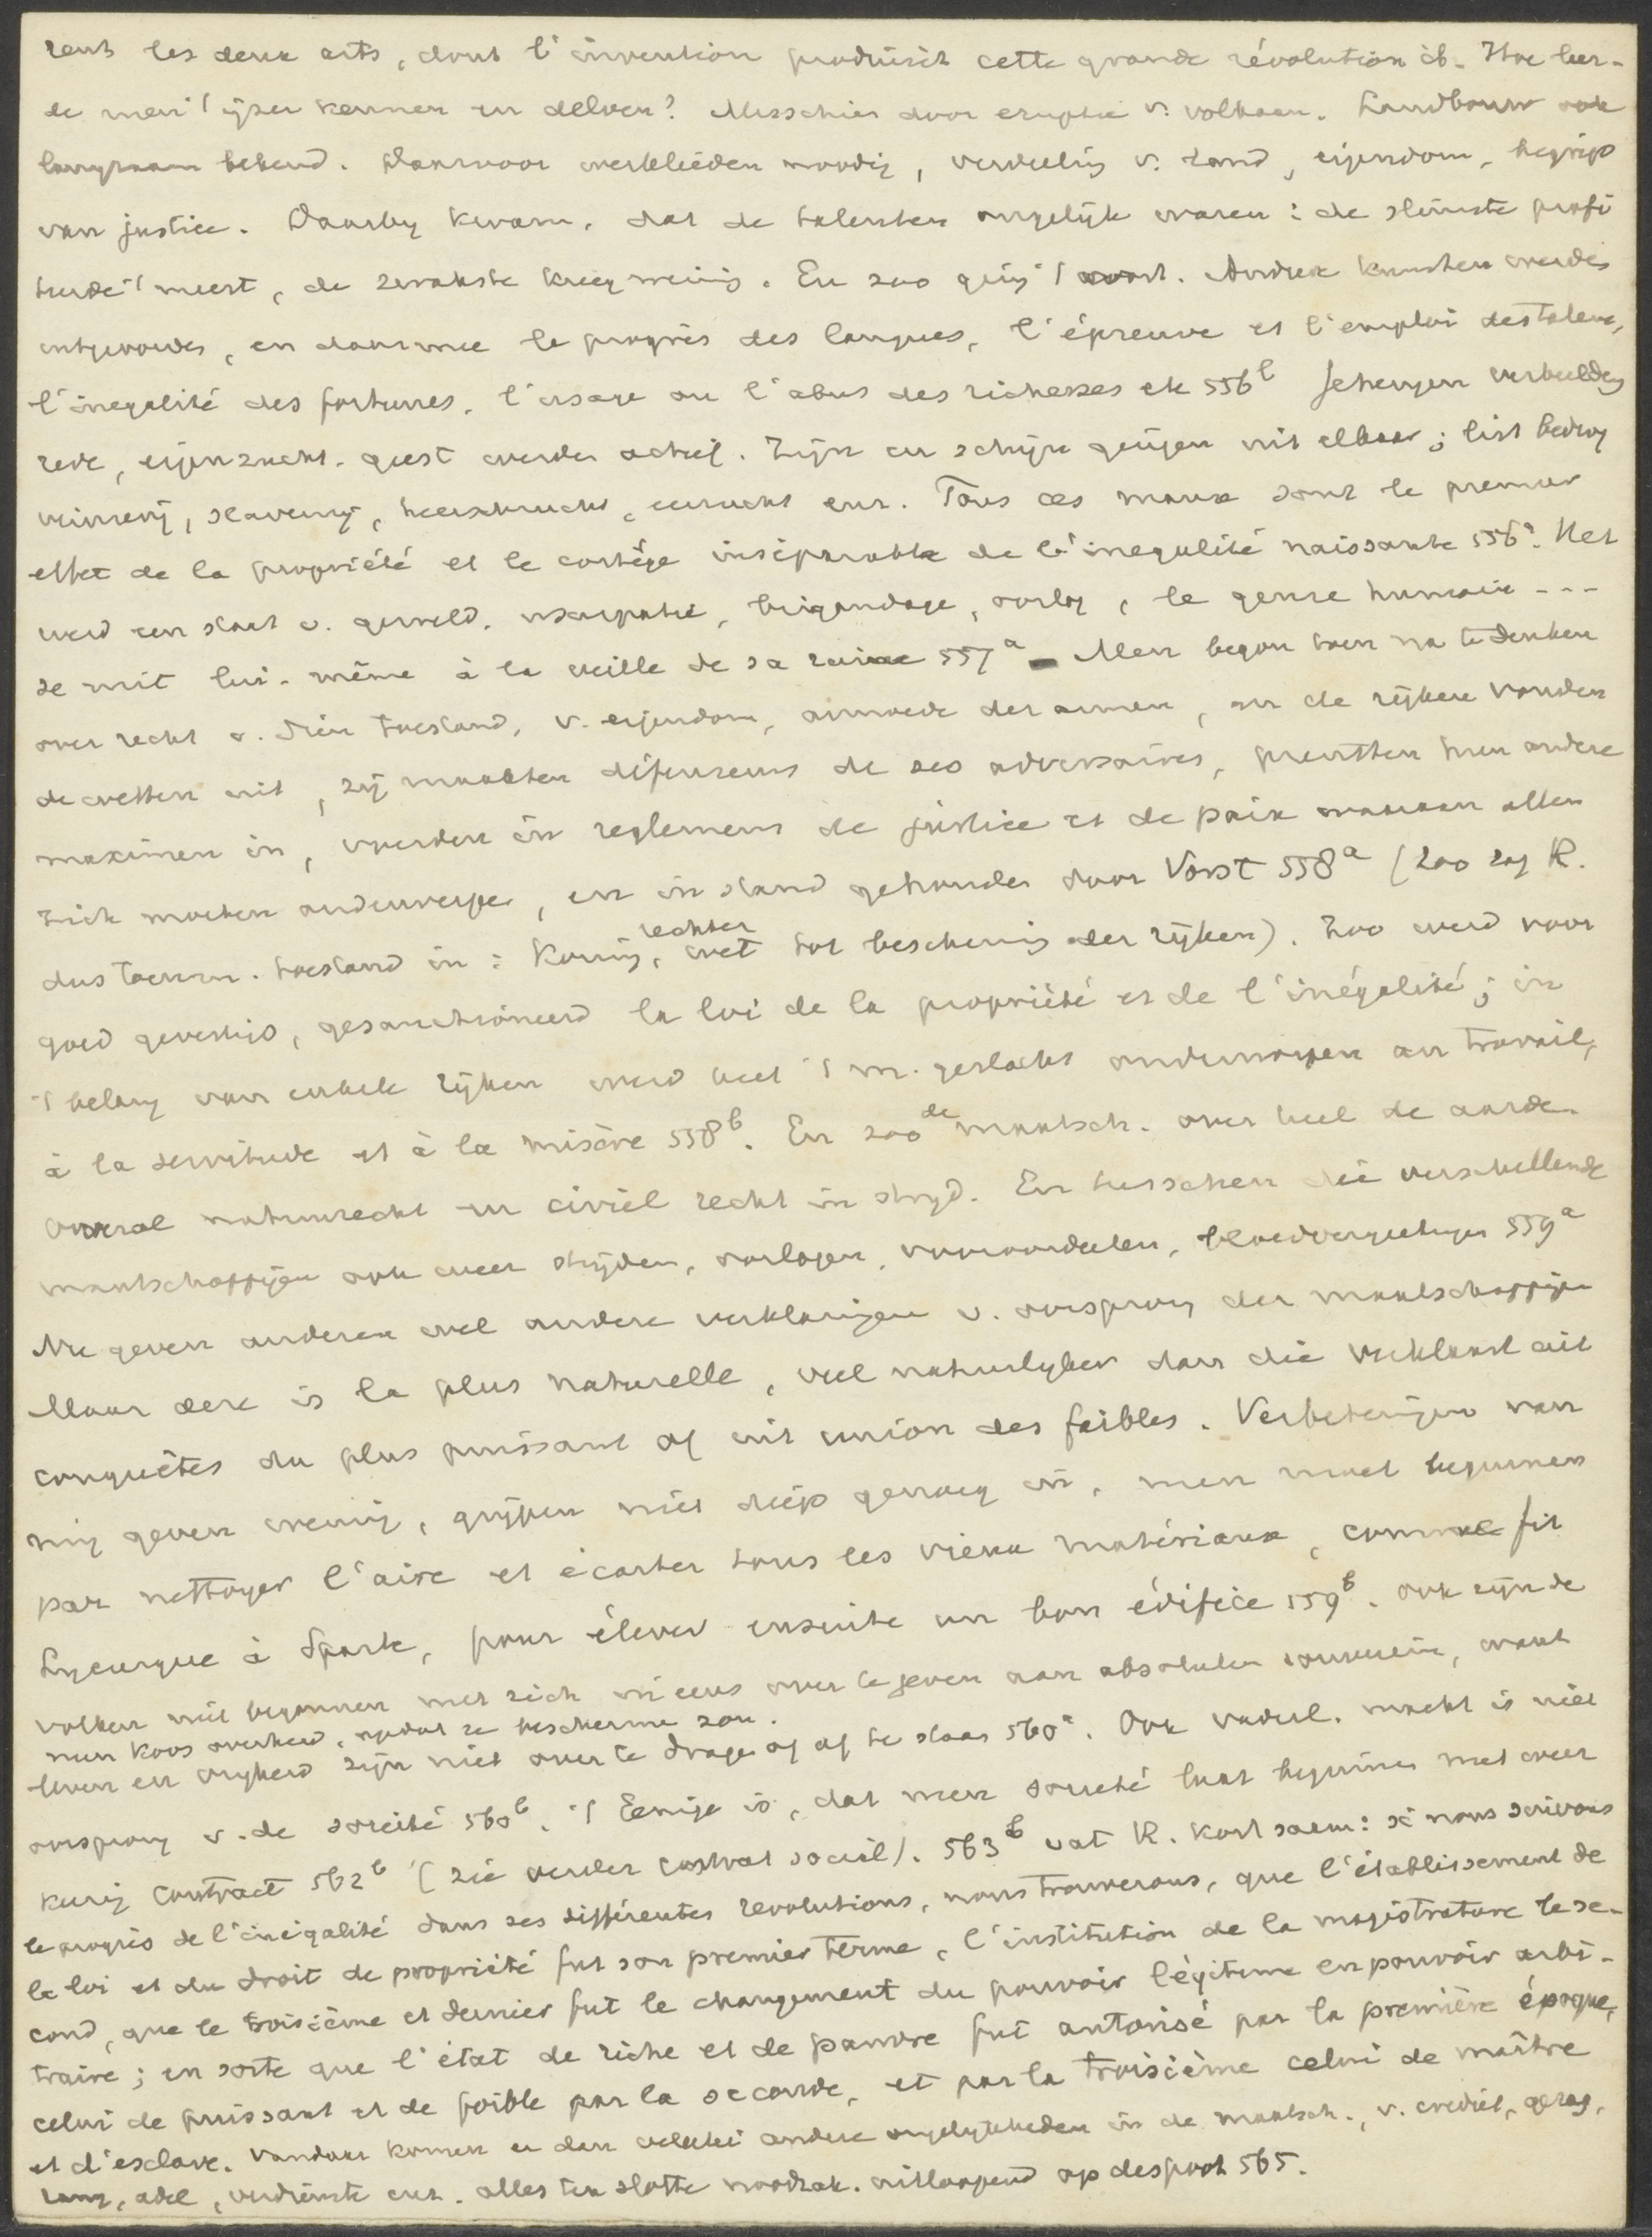 rent les deux arts, dont l'invention produisit cette grande révolution ib. Hoe leer-
de men 't ijzer kennen en delven? Misschien door eruptie v. volkaan. Landbouw ook
langzaam bekend. Daarvoor werklieden noodig, verdeeling v. land, eigendom, begrip
van justice. Daarby kwam, dat de talenten ongelijk waren: de slimste profi
teerde 't meest, de zwakste kreeg weinig. En zoo ging 't voort. Andere kunsten werden
uitgevonden, en daarmee le progrès des langues, l'épreuve et l'emploi des talens,
l'inegalité des fortunes, l'usage ou l'abus des richesses etc 556b Geheugen verbeelding
rede, eigenzucht, geest werden actief. Zijn en schijn gingen uit elkaar; list bedrog
veinzerij, slavernij, heerschzucht, eerzucht enz. Tous ces maux sont le premier
effet de la propriété et le cortège inséparable de l'inegalité naissante 556a. Het
werd een staat v. geweld, usurpatie, brigandage, oorlog, le genre humain ---
se mit lui-même à la veille de sa ruine 557a Men begon toen na te denken
over recht v. dien toestand, v. eigendom, armoede der armen, en de rijken vonden
de wetten uit, zij maakten défenseurs de ses adversaires, prentten hun andere
maximen in, voerden in reglemens de justice et de paix waaraan allen
zich moeten onderwerpen, en in stand gehouden door Vorst 558a (zoo zag R.
dus toenm. toestand in: Koning, rechter wet tot bescherming der rijken). Zoo werd voor
goed gevestigd, gesanctioneerd la loi de la propriété et de l'inégalité; in
't belang van enkele rijken werd heel 't m. geslacht onderworpen au travail,
à la servitude et à la misère 558b. En zoo de maatsch. over heel de aarde.
Overal natuurrecht en civiel recht in strijd. En tusschen die verschillende
maatschappijen ook weer strijden, oorlogen, vooroordeelen, bloedvergietingen 559a
Nu geven anderen wel andere verklaringen v. oorsprong der maatschappijen
Maar deze is la plus naturelle, veel natuurlyker dan die verklaart uit
conquêtes du plus puissant of uit union des faibles. Verbeteringen van
nu geven weinig, grijpen niet diep genoeg in, men moet beginnen
par nettoyer l'aire et écarter tous les vieux matériaux, comme fit
Lycurgue à Sparte, pour élever ensuite un bon édifice 559b. Ook zijn de
volken niet begonnen met zich ineens over te geven aan absoluten souverein, want
men koos overheid, opdat ze beschermen zou.
leven en vryheid zijn niet over te dragen of af te staan 560a. Ook vaderl. macht is niet
oorsprong v. de société 560b. 't Eenige is, dat men société laat beginnen met weer
keurig Contract 562b (zie verder Contrat social). 563b vat R. kort saam: si nous suivons
le progrès de l'inégalité dans ses différentes revolutions, nous trouverons, que l'établissement de
la loi et du droit de propriété fut son premier terme, l'institution de la magistrature le se-
cond, que le troisième et dernier fut le changement du pouvoir légitime en pouvoir arbi-
traire; en sorte que l'état de riche et de pauvre fut autorisé par la première époque,
celui de puissant et de foible par la seconde, et par la troisième celui de maître
et d'esclave. Vandaar komen er dan allerlei andere ongelijkheden in de maatsch., v. crediet, gezag,
rang, adel, verdienste enz. alles ten slotte noodzak. uitloopend op despoot 565.